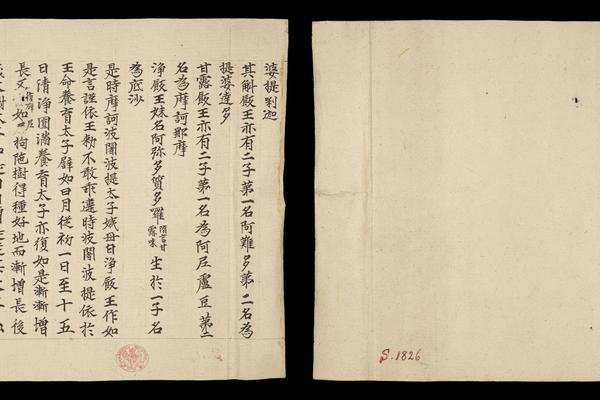 婆提唎迦
其斛飯王亦有二子第一名阿難多第二名為
提婆達多
甘露飯王亦有二子第一名為阿尼盧豆第二
名為摩訶那摩
淨飯王妹名阿弥多質多囉隋言甘露味生於一子名
為底沙
是時摩訶波闍波提太子姨母白淨飯王作如
是言謹依王勑不敢乖違時波闍波提依於
王命養育太子譬如日月從初一日至十五
日清淨圓滿養育太子亦復如是漸漸增
長又如尼拘陁樹得種好地而漸增長後
S.1826